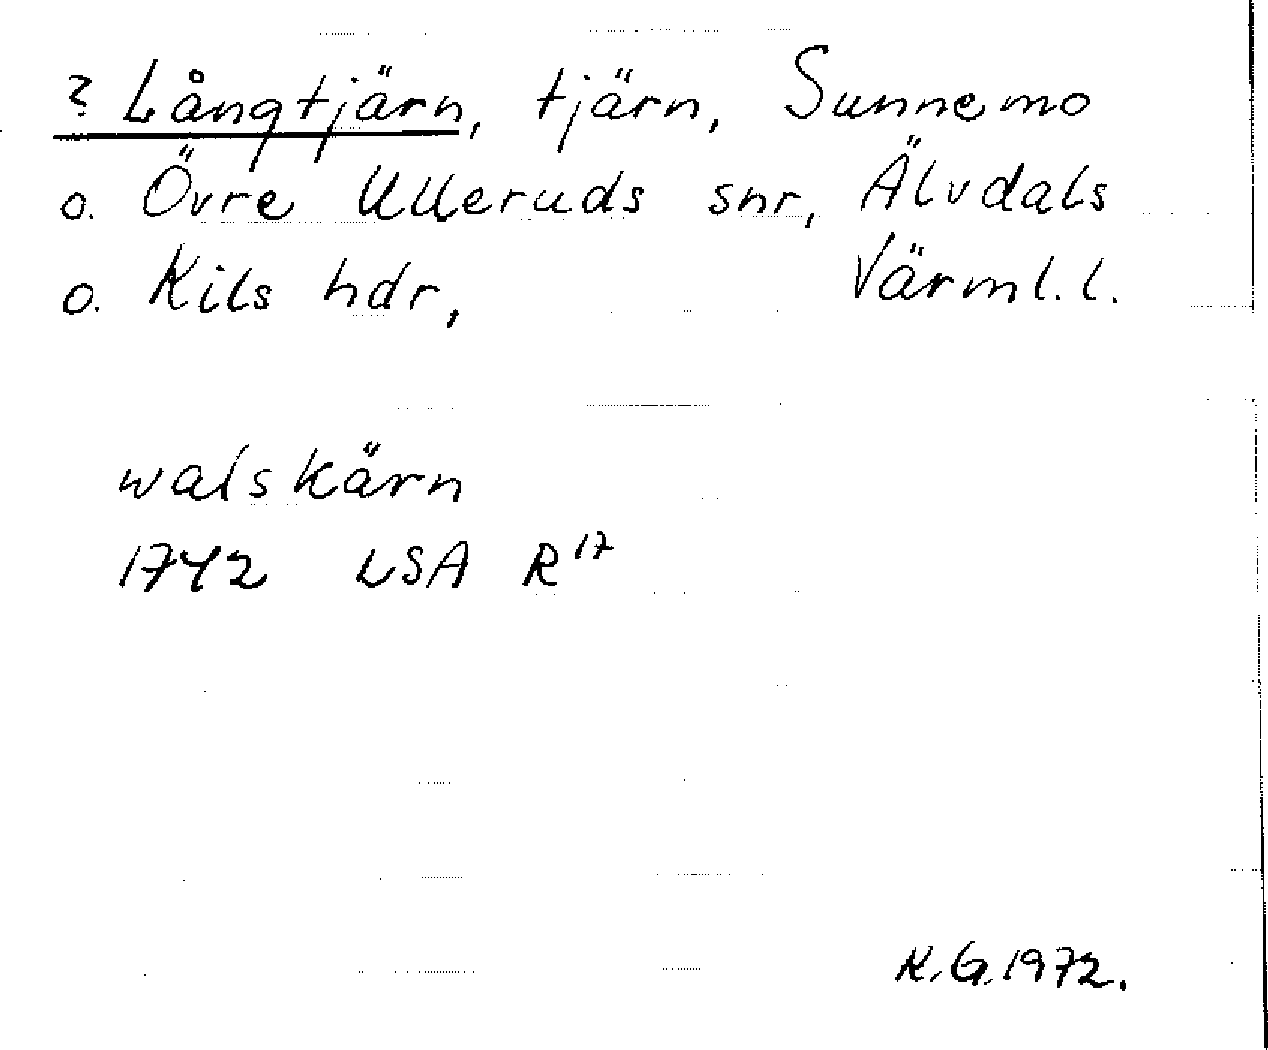 ? Långtjärn, tjärn, Sunnemo
o. Övre Ulleruds snr, Älvdals
o. Kils hdr, Värml. l.
walskärn
1742 LSA R17
K.G. 1972.